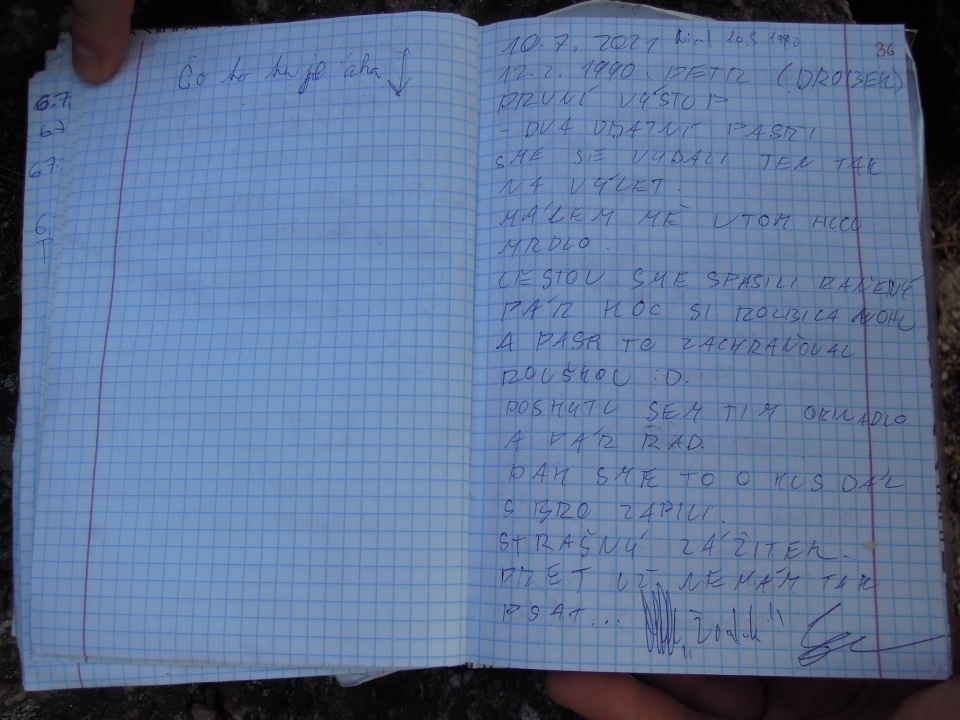 6.7.
67
67.
6.
Čo to tu je áha
36
10.7. 2021 10.5.1990
12.2. 1990. PETR (DROBEK)
PRVNÍ VÝSTUP
- DVA UDATNÍ PAŠRI
SME SE VYDALI TEN TAK
NA VÝLET.
MÁLEM MĚ V TOM HICU
MRDLO.
CESTOU SME SPASILI RANĚNÝ
PÁR HOC SI ROZBILA NOHU
A PASR TO ZACHRAŇOVAL
ROUŠKOU :D.
POSKYTU SEM TIM
A PÁR RAD.
PAK SME TO O KUS DÁL
S BRO ZAPILI.
STRAŠNÝ ZÁŽITEK.
UŽ NEMÁM TAK
PSAT...